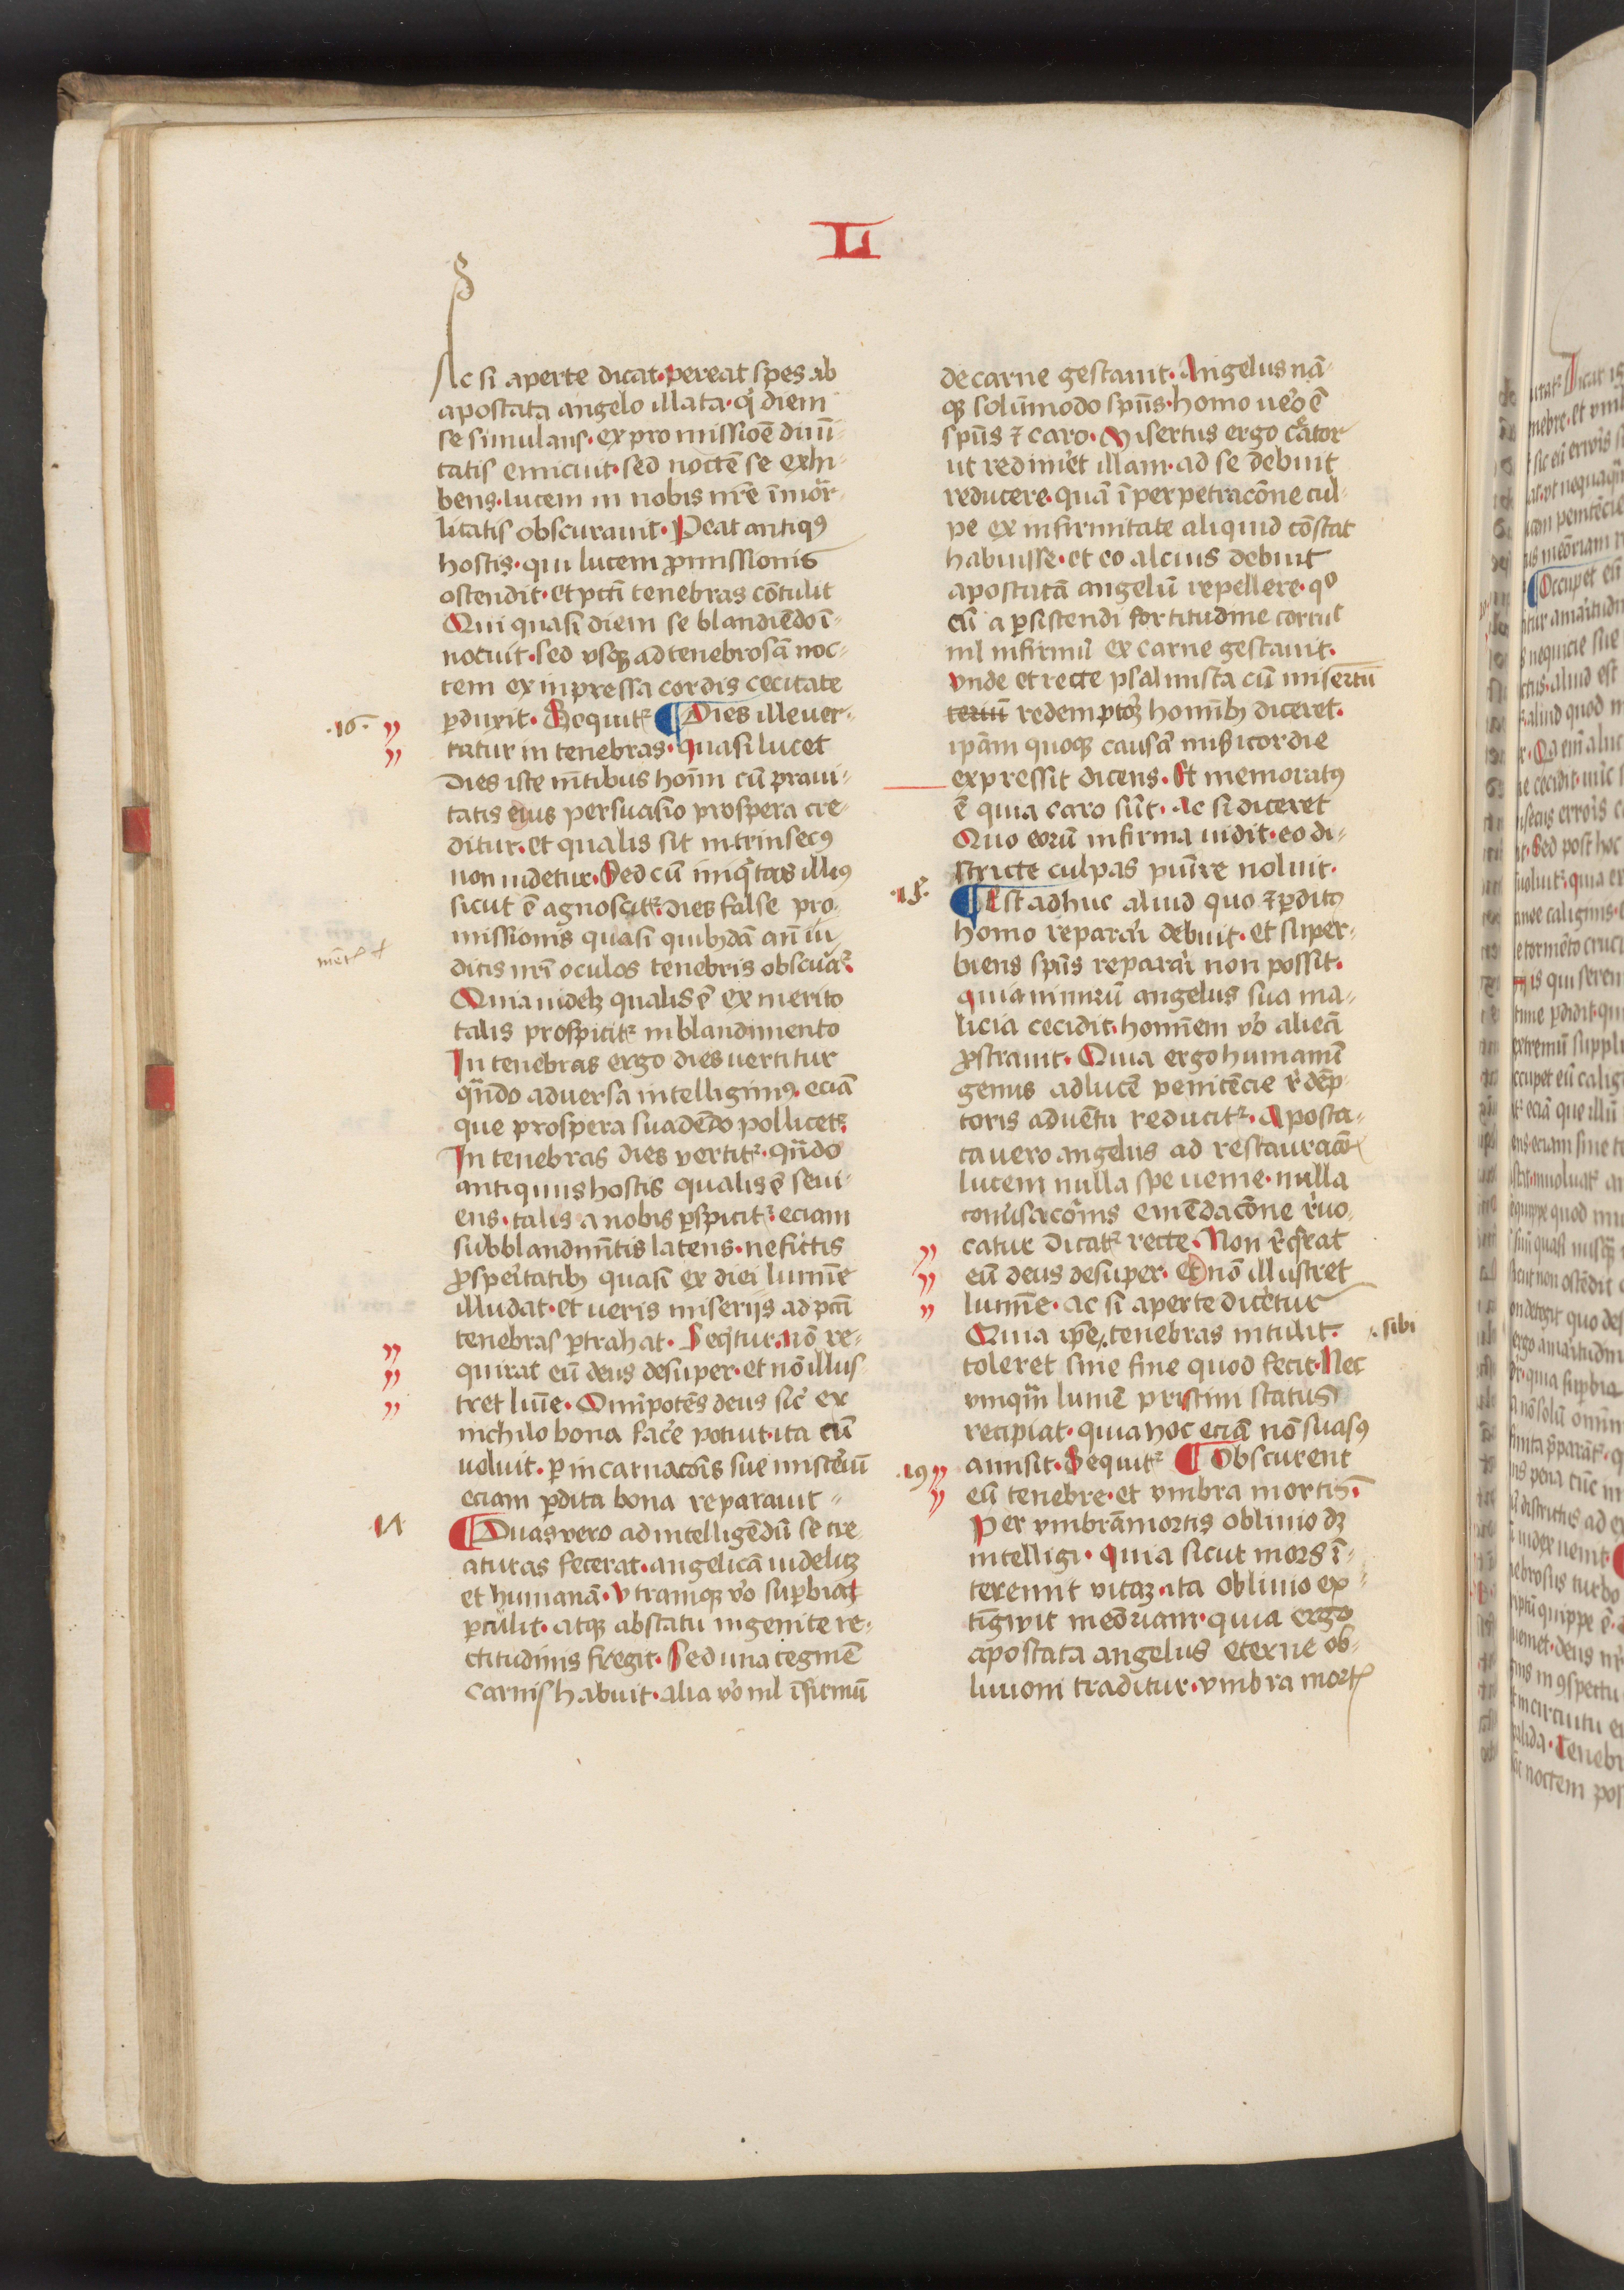 L
Ac si aperte dicat· pereat spes ab
apostata angelo illata· q̇ diem
se simulans· ex promissiōe diuī-
tatis emicuit· sed noctē se exhi-
bens· lucem in nobis nr̄e īmōr-
litatis obscurauit· Peat antiqꝰ
hostis· qui lucem ꝓmissionis
ostendit· et pctī tenebras cōtulit
Qui quasi diem se blandiēdo ī-
notuit· sed vsqꝫ ad tenebrosā noc-
tem ex inpressa cordis cecitate
ꝑduxit· Sequitᷣ ¶ Dies ille ver-
·16·
tatur in tenebras· quasi lucet
Dies iste mētibus hoīm cū praui-
tatis eius persuasio prospera cre-
ditur· et qualis sit intrinsecꝰ
non uidetur· Sed cū iniq̇tas illiꝰ
sicut ē agnoscitᷣ· dies false pro-
missionis quasi quibꝫdā an̄ iu-
ditis nr̄i oculos tenebris obscuratᷣ·
Quia uidelꝫ qualis ē ex merito
talis prospicitᷣ in blandimento
In tenebras ergo dies uertitur
qn̄do aduersa intelligimꝰ· eciā
que prospera suadēdo pollicetᷣ·
In tenebras dies vertitᷣ· qn̄do
antiquus hostis qualis ē seui-
ens· talis a nobis ꝑspicitᷣ· eciam
sub blandimētis latens· ne fictis
ꝓspeitatibꝫ quasi ex diei lumīe
illudat· et ueris miserijs ad pctī
tenebras ꝑtrahat· Seq̇tur· nō re-
quirat eū deus desuper· et nō illus-
tret lumīe· Omīpotēs deus sic̄ ex
nichilo bona fac̄e potuit· ita cū
uoluit· ꝑ incarnacōīs sue misteīū
eciam ꝑdita bona reparauit
17
¶ Duas vero ad intelligēdū se cre-
aturas fecerat· angelicā uidelicꝫ
et humanā· Vtramqꝫ v̄o suꝑbia
ꝑculit· atqꝫ ab statu ingenite re-
ctitudinis fregit· Sed una tegmē
carnis habuit· alia v̄o nil īfirmū
de carne gestauit· Angelus nā-
qꝫ solūmodo spūs· homo uēo ē
spūs ⁊ caro· Misertus ergo c̄ator
ut redimēt illam· ad se debuit
reducere· quā ī perpetracōne cul-
pe ex infirmitate aliquid cōstat
habuisse· et eo alcius debuit
apostatā angelū repellere· qo
cū a ꝑsistendi fortitudine corruit
nil infirmū ex carne gestauit·
vnde et recte psalmista cū misertū
teriū redemptoꝝ homībꝫ diceret·
ipām quoqꝫ causā mīsicordie
expressit dicens· Et memoratꝰ
ē quia caro sūt· Ac si diceret
Quo eorū infirma uidit· eo di-
stricte culpas punīre noluit·
·18·
¶ Est adhuc aliud quo ⁊ ꝑditꝰ
homo reparāi debuit· et super-
biens spūs reparāi non possit·
quia nimirū angelus sua ma-
licia cecidit· hominem v̄o aliena
ꝓstrauit· Quia ergo humanū
genus ad lucē penitēcie r̄dēp-
toris aduētu reducitᷣ· Aposta-
ta uero angelus ad restauracōīs
lucem nulla spe uenie· nulla
conūsacōnis emēdacōne r̄uo-
catur dicatᷣ recte· Non r̄q̇rat
eū deus desuper· et nō illustret
lumīe· ac si aperte dicētur
Quia ip̄e tenebras intulit·
· sibi
toleret sine fine quod fecit· Nec
vmqm̄ lumē pristini status
recipiat· quia hoc eciā nō suasꝰ
amisit· Sequitᷣ ¶ Obscurent
·19
eū tenebre· et vmbra mortis·
Per vmbrā mortis obliuio dꝫ
intelligi· quia sicut mors ī-
teremit vitaꝫ· ita obliuio ex-
tingwit meōriam· quia ergo
apostata angelus eterne ob-
liuioni traditur· vmbra mortis